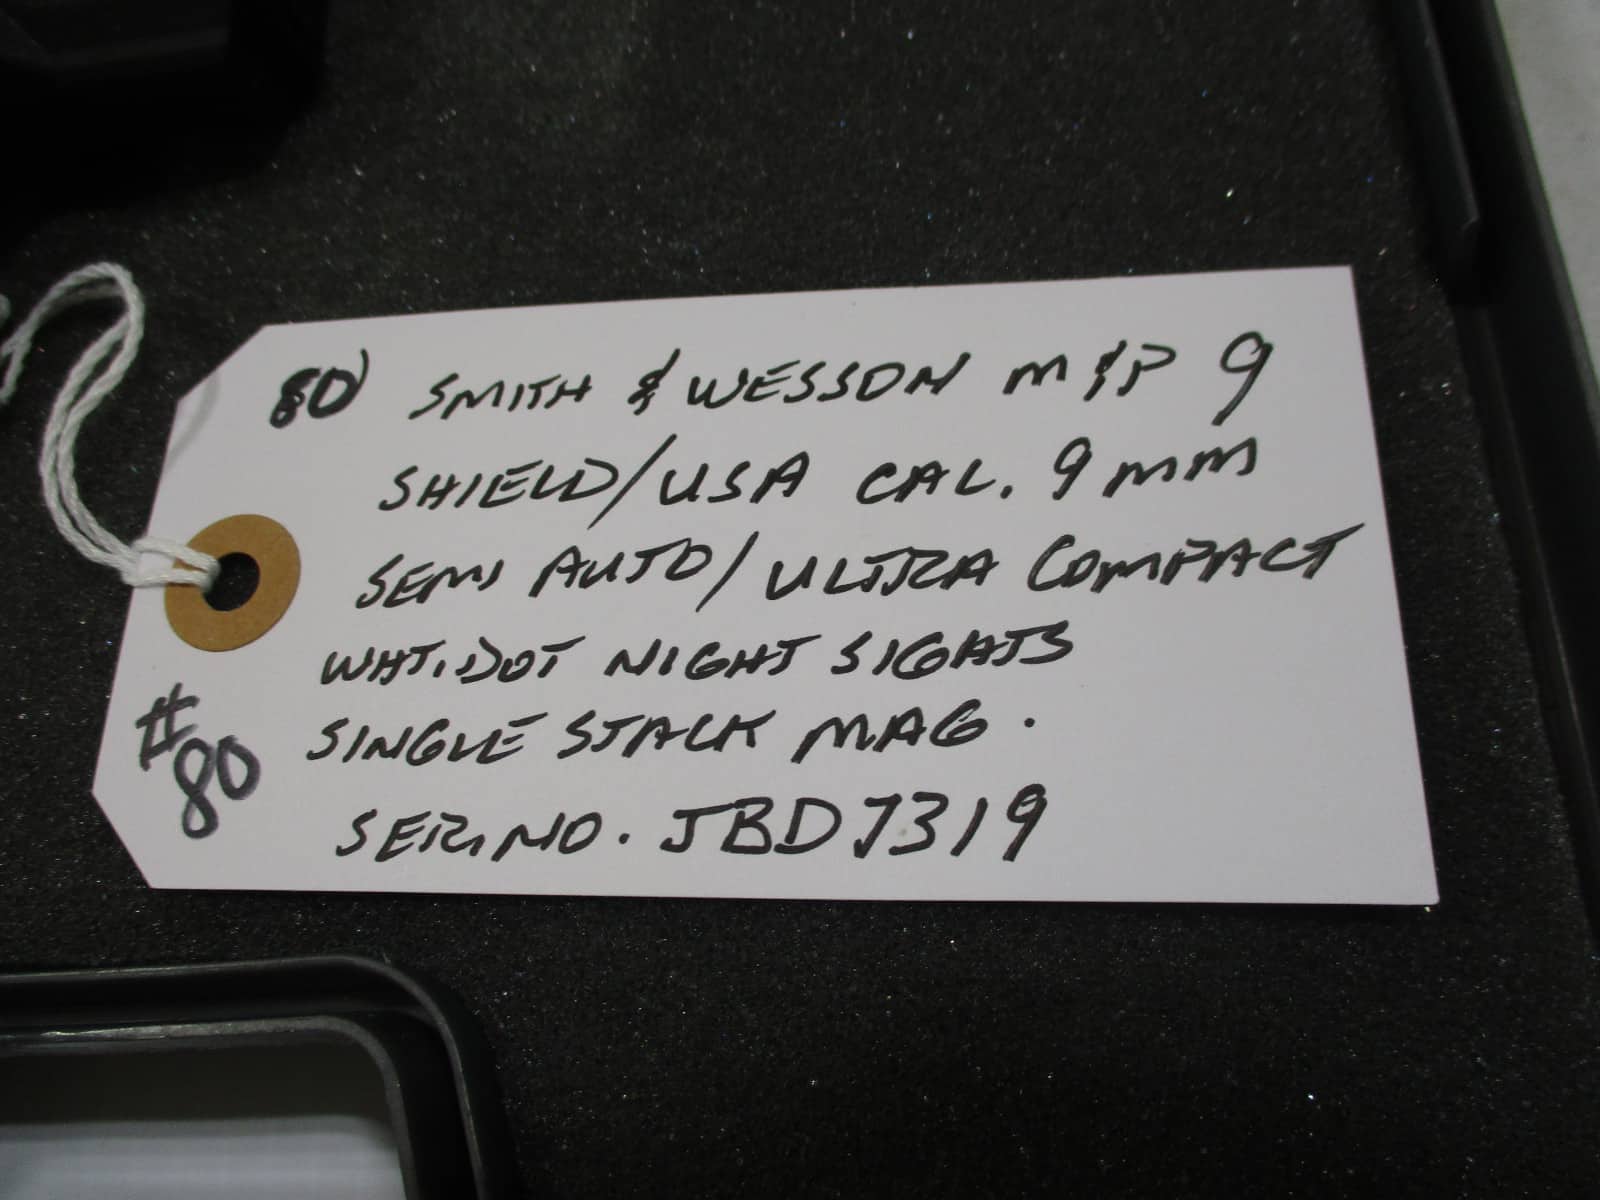 80) SMITH & WESSON M&P 9
SHIELD/USA CAL. 9MM
SEMI AUTO/ULTRA COMPACT
WHT.DOT NIGHT SIGHTS
SINGLE STACK MAG.
SER.NO. JBD7319
#80